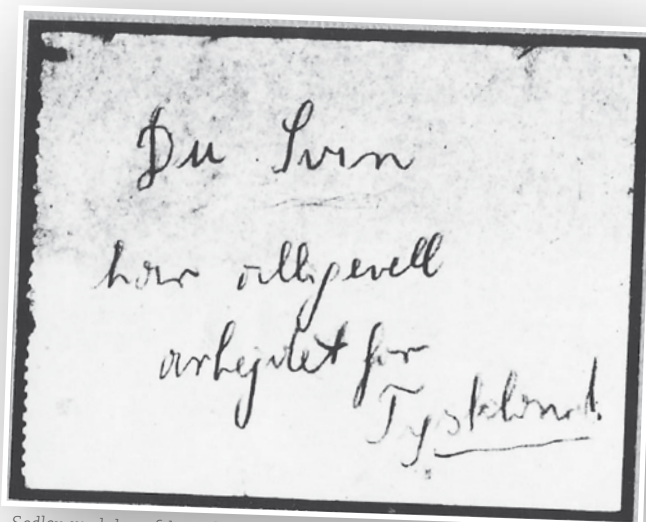 Du Svin
har alligevell
arbejdet for
Tyskland.